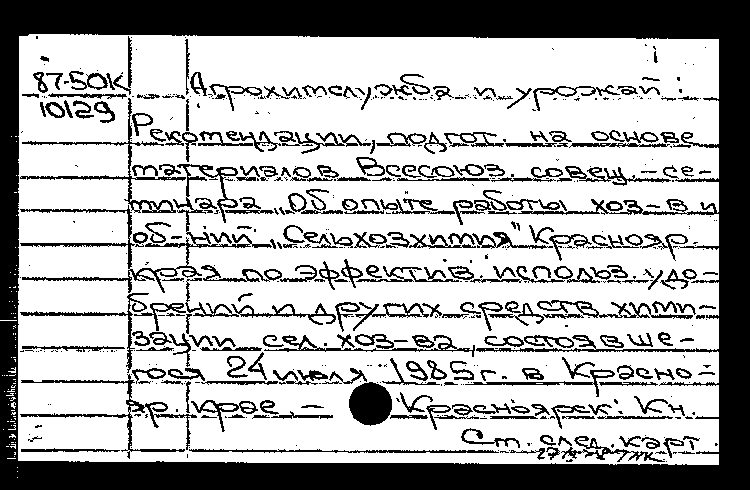 87-50К Агрохимслужба и урожай :
10129
Рекомендации, подгот. на основе
материалов Всесоюз. совещ.-се-
минара „Об опыте работы хоз-в и
об-ний „Сельхозхимия" Краснояр.
края по эффектив. использ. удо-
брений и других средств хими-
зации сел. хоз-ва, состоявше-
гося 24 июля 1985 г. в Красно-
яр. крае. – Красноярск: Кн.
См. след. карт.